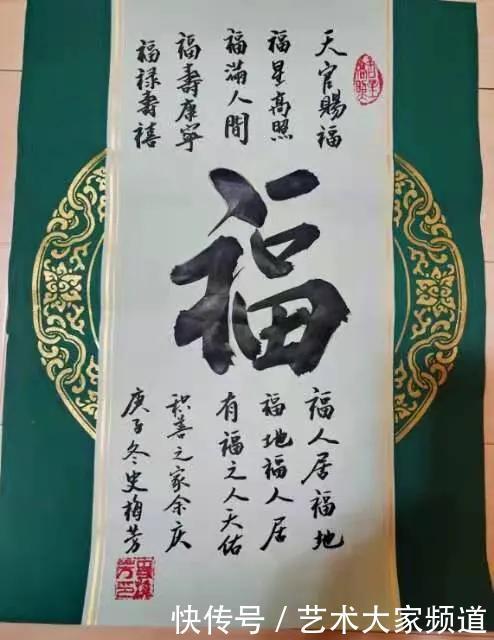 天官賜福
福星高照
福滿人間
福壽康寧
福禄壽禧
福
福人居福地
福地福人居
有福之人天佑
积善之家余庆
庚子冬史梅芳
快传号/艺术大家频道